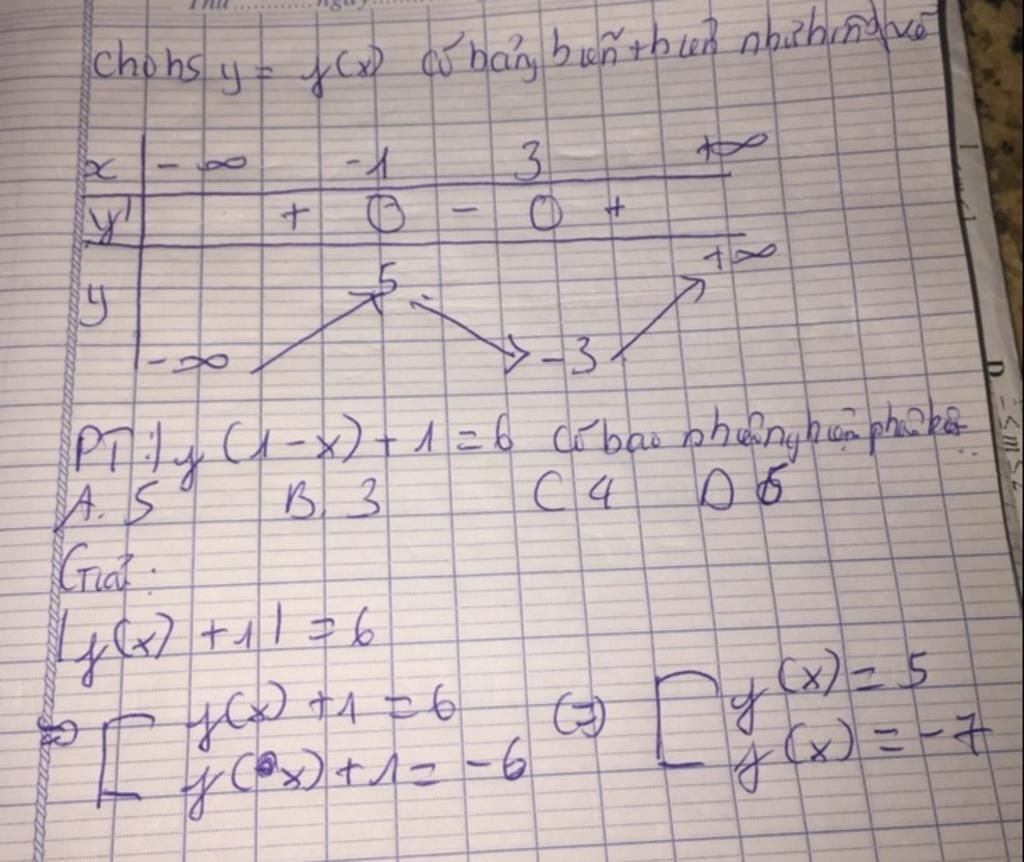 Cho hs y = f(x) có bảng biến thiên như hình vẽ
x -∞ -1 3 +∞
y' + 0 - 0 +
y -∞ 5 -3 +∞
PT: |f(1-x)+1=6 có bao nhiêu nghiệm phân biệt
A. 5 B. 3 C 4 D 6
Giải:
|f(x) +1| = 6
f(x) +1 = 6 (=) f(x) = 5
f(x)+1 = -6 f(x) = -7